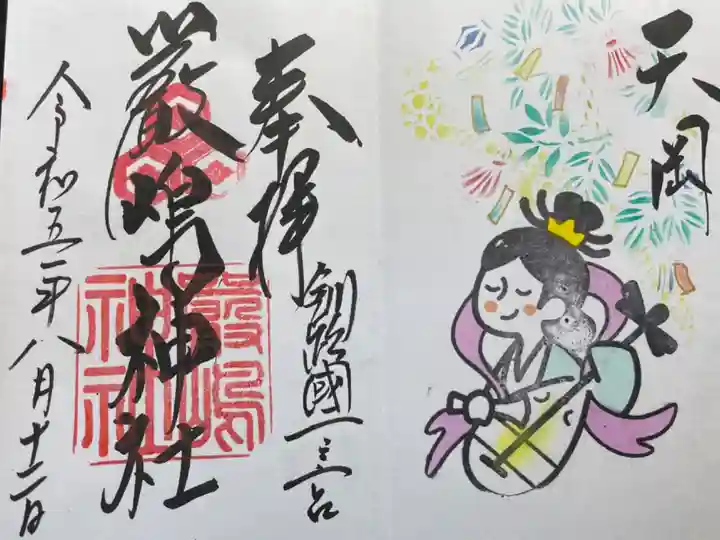 天岡
奉拝
釧路國一之宮
嚴嶋神社
嚴嶋神社
令和五年八月十二日